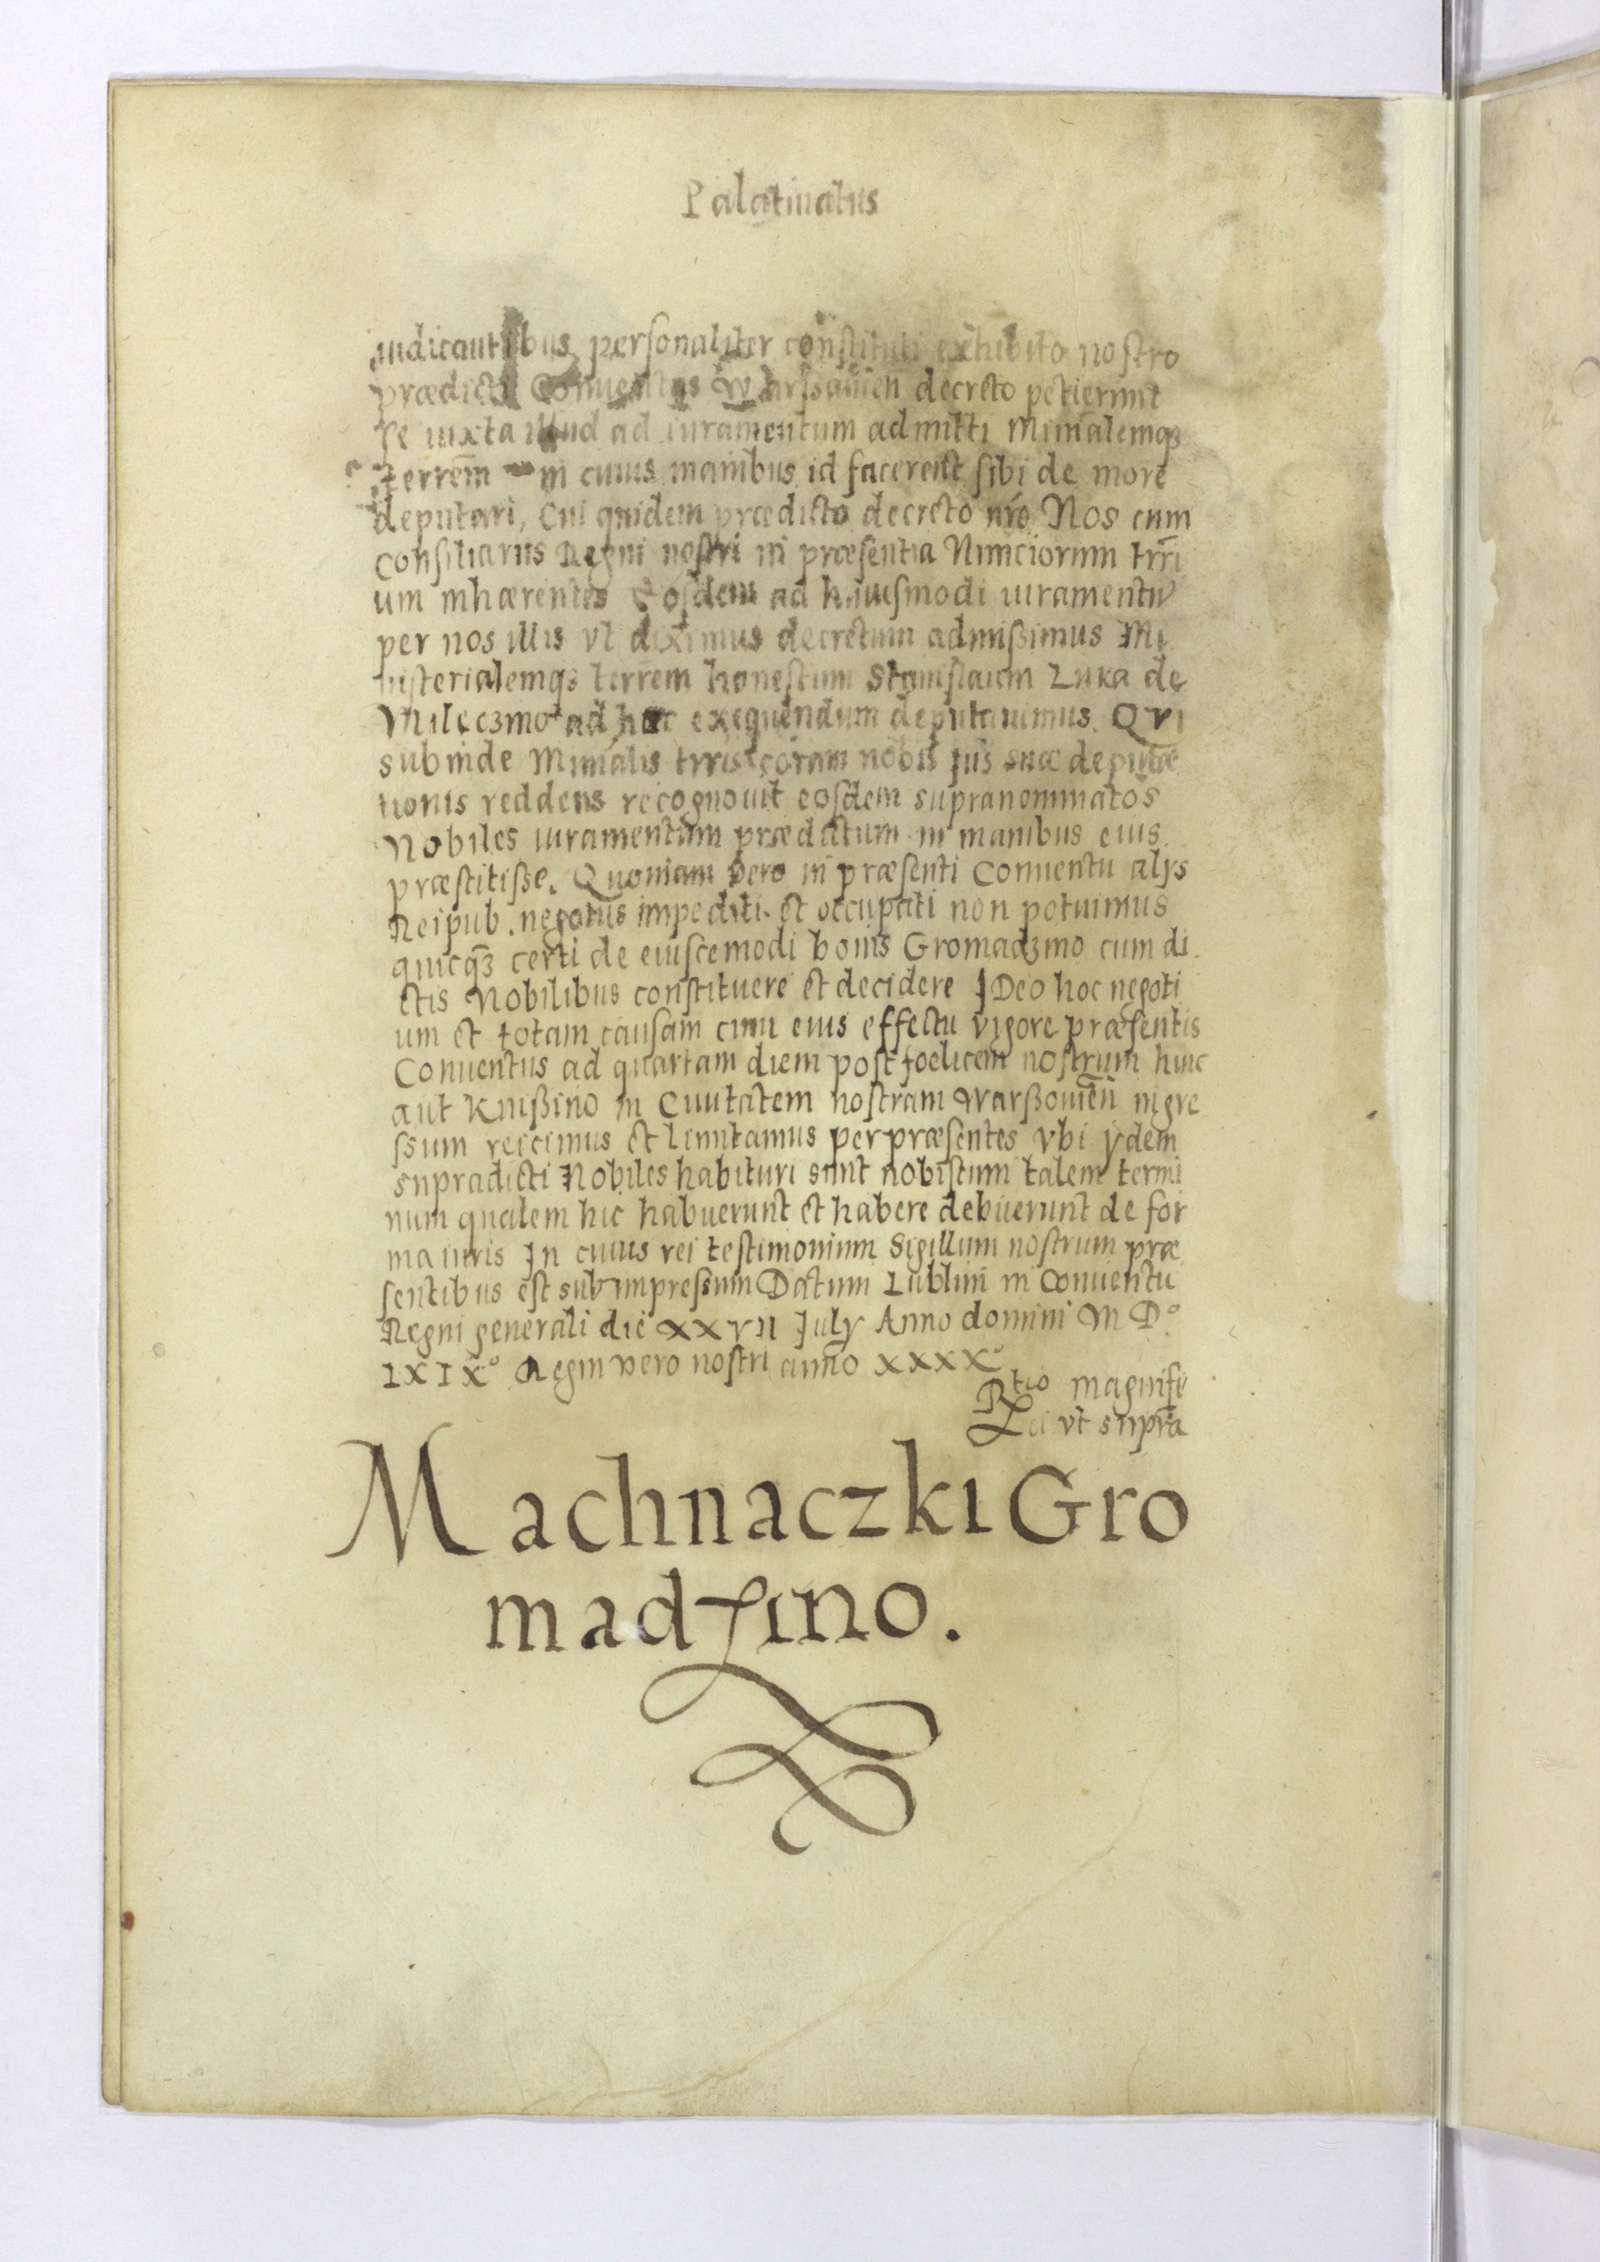 Palatinatus
iudicantibus personaliter constituti exhibito nostro
prædicti Conuentus Warssauien̄ decreto petierunt
se iuxta illud ad iuramentum admitti Minr̄alemqꝫ
terrēm in cuius manibus id facerent sibi de more
deputari, Cui quidem prædicto decreto nr̄o Nos cum
Consiliariis Regni nostri in præsentia Nunciorum trr̄i
um inhærentes Eosdem ad huiusmodi iuramentū
per nos illis vt diximus decretum admißimus Mi
nisterialemqꝫ terrēm honestum Stanislaum Luka de
Mileczmo ad hoc exequendum deputauimus. Qvi
subinde Minr̄alis trrīs coram nobis suæ deputa
tionis reddens recognouit eosdem supranominatos
Nobiles iuramentum prædictum in manibus eius
præstitisse. Quoniam vero in præsenti Conuentu alÿs
Reipub. negotiis impediti et occupati non potuimus
quicqꝫ certi de eiuscemodi bonis Gromadzino cum di
ctis Nobilibus constituere et decidere IDeo hoc negoti
um et totam causam cum eius effectu vigore præsentis
Conuentus ad quartam diem post foelicem nostrum hinc
aut Knißino in Ciuitatem nostram Warßouien̄ ingre
ssum reicimus et limitamus per præsentes vbi ÿdem
supradicti Nobiles habituri sunt nobiscum talem termi
num qualem hic habuerunt et habere debuerunt de for
ma iuris In cuius rei testimonium Sigillum nostrum præ
sentibus est subimpressum Datum Lublini in Conuentu
Regni generali die XXVII Julÿ Anno domini M D°
LXIX° Regni vero nostri anno XXXX°
Rtio magnifi
ci vt supra
Machnaczki Gro
madzino.